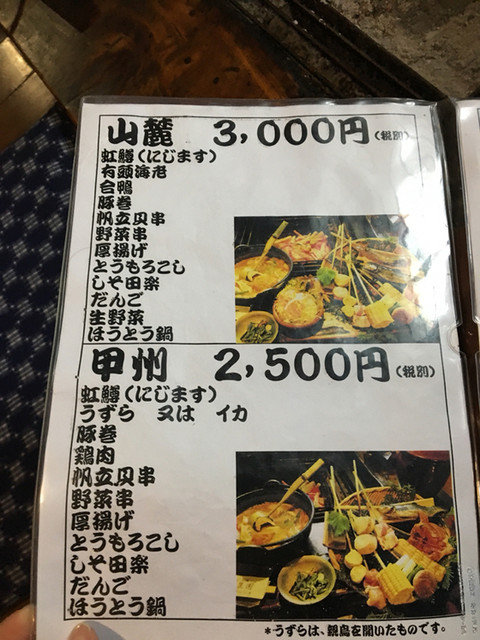 山麓 3,000円(税別)
虹鱒(にじます)
有頭海老
合鴨
豚巻
帆立貝串
野菜串
厚揚げ
とうもろこし
しそ田楽
だんご
生野菜
ほうとう鍋
甲州 2,500円(税別)
虹鱒(にじます)
うずら 又は イカ
豚巻
鶏肉
帆立貝串
野菜串
厚揚げ
とうもろこし
しそ田楽
だんご
ほうとう鍋
*うずらは、親鳥を開いたものです。